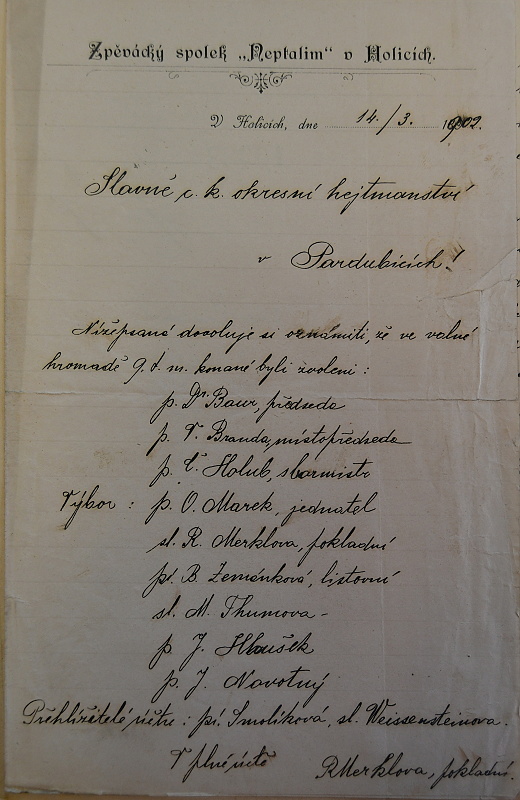 Zpěvácký spolek „Neptalim“ v Holicích.
V Holicích, dne 14./3. 1902.
Slavné c. k. okresní hejtmanství
v Pardubicích!
Nížepsaná dovoluje si oznámiti, že ve valné
hromadě 9. t. m. konané byli zvoleni :
p. Dr Baur, předseda
p. V. Branda, místopředseda
p. Č. Holub, sbormistr
Výbor : p. O. Marek, jednatel
sl. R. Merklova, pokladní
pí. B. Zemánková, listovní
sl. M. Thumova -
p. J. Hloušek
p. J. Novotný
Přehlížitelé účtů : pí. Smolíková, sl. Weissensteinova.
V plné úctě
RMerklova, pokladní.